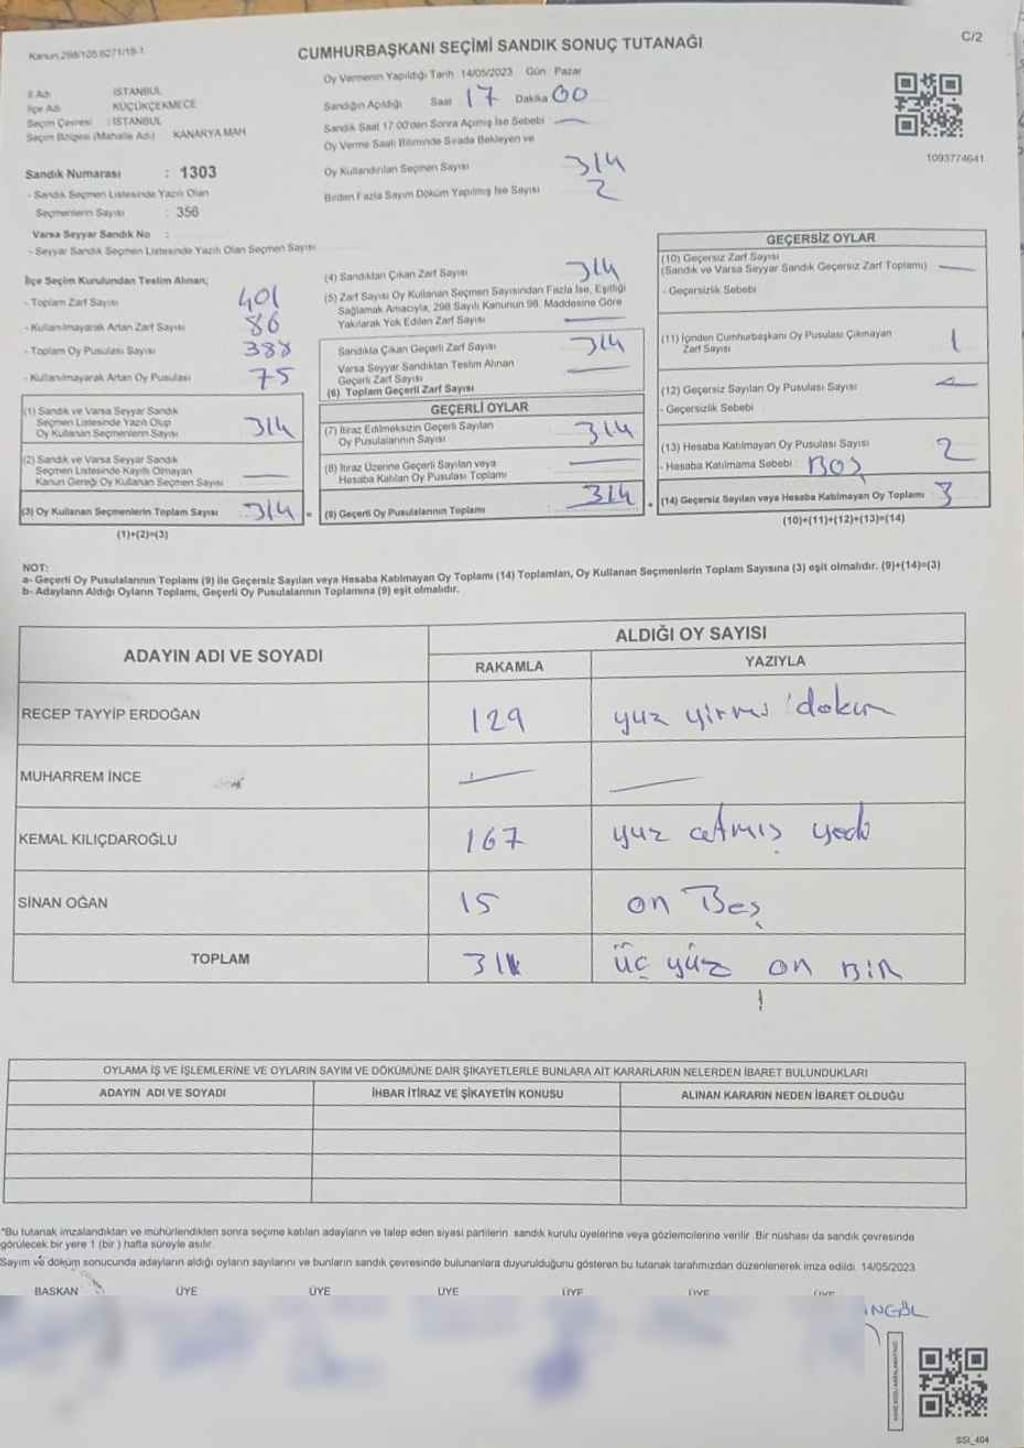 Kanun 298/105 6271/19-1
CUMHURBAŞKANI SEÇİMİ SANDIK SONUÇ TUTANAĞI
C/2
Oy Vermenin Yapıldığı Tarih 14/05/2023 Gün Pazar
İl Adı İSTANBUL
İlçe Adı KÜÇÜKÇEKMECE
Seçim Çevresi : İSTANBUL
Seçim Bölgesi (Mahalle Adı) KANARYA MAH
Sandığın Açıldığı Saat 17 Dakika 00
Sandık Saat 17:00'den Sonra Açılmış İse Sebebi —
Oy Verme Saati Bitiminde Sırada Bekleyen ve
Oy Kullandırılan Seçmen Sayısı 314
Birden Fazla Sayım Döküm Yapılmış İse Sayısı 2
1093774641
Sandık Numarası : 1303
- Sandık Seçmen Listesinde Yazılı Olan
Seçmenlerin Sayısı : 356
Varsa Seyyar Sandık No :
- Seyyar Sandık Seçmen Listesinde Yazılı Olan Seçmen Sayısı
İlçe Seçim Kurulundan Teslim Alınan;
- Toplam Zarf Sayısı 401
- Kullanılmayarak Artan Zarf Sayısı 86
- Toplam Oy Pusulası Sayısı 388
- Kullanılmayarak Artan Oy Pusulası 75
(1) Sandık ve Varsa Seyyar Sandık
Seçmen Listesinde Yazılı Olup
Oy Kullanan Seçmenlerin Sayısı 314
(2) Sandık ve Varsa Seyyar Sandık
Seçmen Listesinde Kayıtlı Olmayan
Kanun Gereği Oy Kullanan Seçmen Sayısı —
(3) Oy Kullanan Seçmenlerin Toplam Sayısı 314 =
(1)+(2)=(3)
(4) Sandıktan Çıkan Zarf Sayısı 314
(5) Zarf Sayısı Oy Kullanan Seçmen Sayısından Fazla İse, Eşitliği
Sağlamak Amacıyla, 298 Sayılı Kanunun 98. Maddesine Göre
Yakılarak Yok Edilen Zarf Sayısı —
Sandıkta Çıkan Geçerli Zarf Sayısı 314
Varsa Seyyar Sandıktan Teslim Alınan
Geçerli Zarf Sayısı —
(6) Toplam Geçerli Zarf Sayısı
GEÇERLİ OYLAR
(7) İtiraz Edilmeksizin Geçerli Sayılan
Oy Pusulalarının Sayısı 314
(8) İtiraz Üzerine Geçerli Sayılan veya
Hesaba Katılan Oy Pusulası Toplamı —
(9) Geçerli Oy Pusulalarının Toplamı 314
GEÇERSİZ OYLAR
(10) Geçersiz Zarf Sayısı
(Sandık ve Varsa Seyyar Sandık Geçersiz Zarf Toplamı) —
- Geçersizlik Sebebi
(11) İçinden Cumhurbaşkanı Oy Pusulası Çıkmayan
Zarf Sayısı 1
(12) Geçersiz Sayılan Oy Pusulası Sayısı
- Geçersizlik Sebebi
(13) Hesaba Katılmayan Oy Pusulası Sayısı 2
- Hesaba Katılmama Sebebi BOŞ
(14) Geçersiz Sayılan veya Hesaba Katılmayan Oy Toplamı 3
(10)+(11)+(12)+(13)=(14)
NOT:
a- Geçerli Oy Pusulalarının Toplamı (9) ile Geçersiz Sayılan veya Hesaba Katılmayan Oy Toplamı (14) Toplamları, Oy Kullanan Seçmenlerin Toplam Sayısına (3) eşit olmalıdır. (9)+(14)=(3)
b- Adayların Aldığı Oyların Toplamı, Geçerli Oy Pusulalarının Toplamına (9) eşit olmalıdır.
ADAYIN ADI VE SOYADI
ALDIĞI OY SAYISI
RAKAMLA YAZIYLA
RECEP TAYYİP ERDOĞAN 129 yuz yirmi dokuz
MUHARREM İNCE — —
KEMAL KILIÇDAROĞLU 167 yuz atmış yedi
SİNAN OĞAN 15 on Beş
TOPLAM 311 üç yüz on BİR
OYLAMA İŞ VE İŞLEMLERİNE VE OYLARIN SAYIM VE DÖKÜMÜNE DAİR ŞİKAYETLERLE BUNLARA AİT KARARLARIN NELERDEN İBARET BULUNDUKLARI
ADAYIN ADI VE SOYADI İHBAR İTİRAZ VE ŞİKAYETİN KONUSU ALINAN KARARIN NEDEN İBARET OLDUĞU
*Bu tutanak imzalandıktan ve mühürlendikten sonra seçime katılan adayların ve talep eden siyasi partilerin sandık kurulu üyelerine veya gözlemcilerine verilir. Bir nüshası da sandık çevresinde
görülecek bir yere 1 (bir) hafta süreyle asılır.
Sayım ve döküm sonucunda adayların aldığı oyların sayılarını ve bunların sandık çevresinde bulunanlara duyurulduğunu gösteren bu tutanak tarafımızdan düzenlenerek imza edildi. 14/05/2023
BAŞKAN ÜYE ÜYE ÜYE ÜYE ÜYE ÜYE
SSI_404